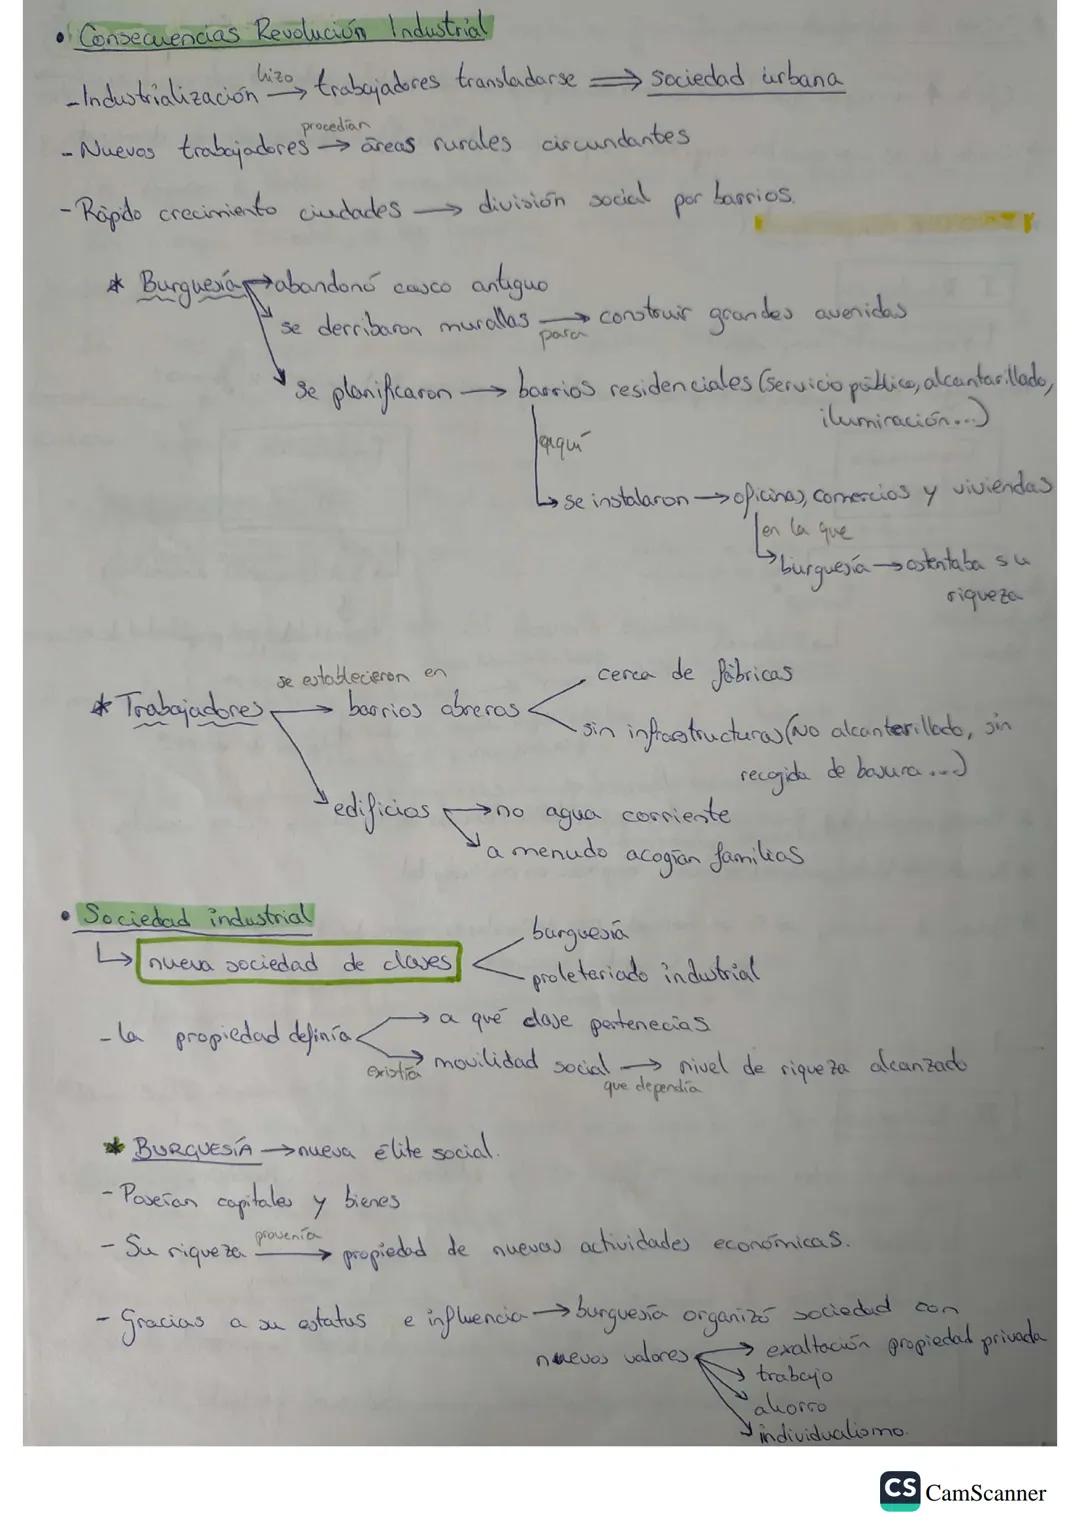 • Consecuencias Revolución Industrial
- Industrialización hizo → trabajadores transladarse ⇒ sociedad urbana
- Nuevos trabajadores procedían → áreas rurales circundantes
- Rápido crecimiento ciudades → división social por barrios.
* Burguesía → abandonó casco antiguo
se derribaron murallas para → construir grandes avenidas
se planificaron → barrios residenciales (servicio público, alcantarillado,
iluminación...)
aquí
se instalaron → oficinas, comercios y viviendas
en la que
burguesía → ostentaba su
riqueza
se establecieron en
cerca de fábricas
* Trabajadores → barrios obreros
sin infraestructuras (No alcantarillado, sin
recogida de basura...)
edificios → no agua corriente
a menudo acogían familias
• Sociedad industrial
burguesía
↳ nueva sociedad de clases
proleteriado industrial
- la propiedad definía → a qué clase pertenecías
existía → movilidad social → nivel de riqueza alcanzado
que dependía
* BURGUESÍA → nueva élite social.
- Poseían capitales y bienes
- Su riqueza provenía → propiedad de nuevas actividades económicas.
- Gracias a su estatus e influencia → burguesía organizó sociedad con
nuevos valores → exaltación propiedad privada
→ trabajo
ahorro
individualismo.
CS CamScanner